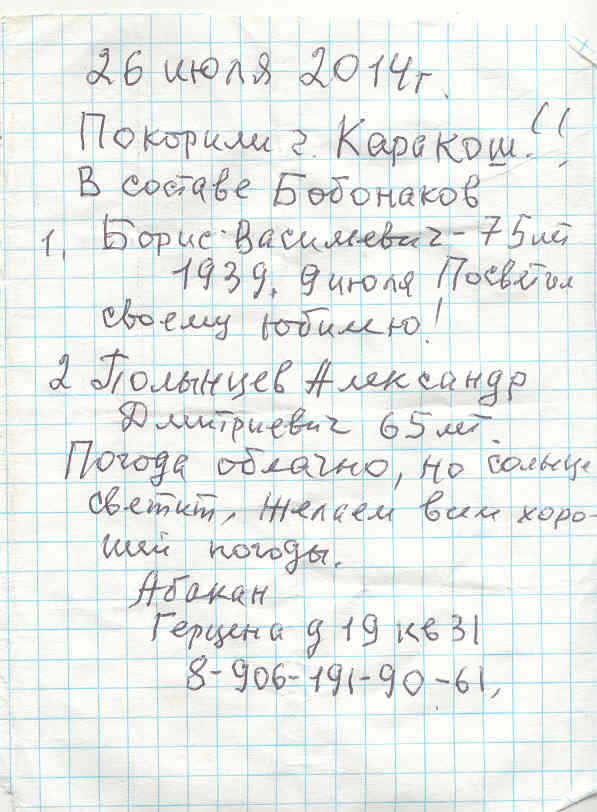 26 июля 2014г.
Покорили г. Каракош!!!
В составе Бобонаков
1. Борис Василиевич - 75 лет
1939, 9 июля Посветил
своему юбилею!
2 Полынцев Александр
Дмитриевич 65 лет.
Погода облачно, но солнце
светит, Желаем всем хоро-
шей погоды.
Абакан
Герцена д 19 кв 31
8-906-191-90-61,